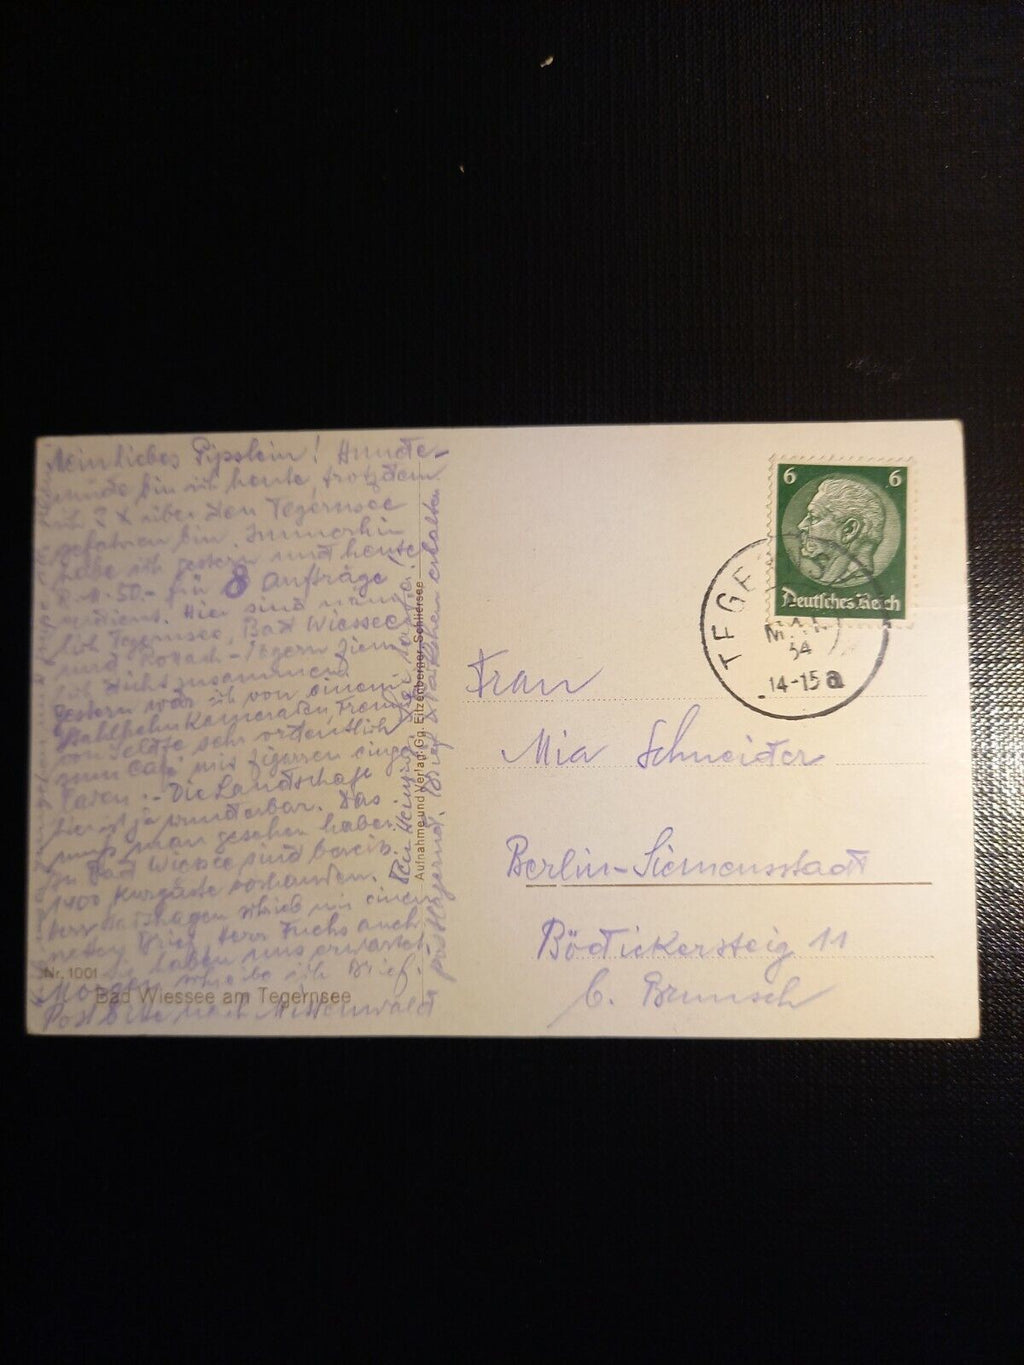 Mein liebes Pipslein! Hunde-
müde bin ich heute, trotzdem
ich 2 x über den Tegernsee
gefahren bin. Immerhin
habe ich gestern und heute
R.M. 50.- für 8 Aufträge
verdient. Hier sind näm-
lich Tegernsee, Bad Wiessee
und Rottach-Egern ziem-
lich dicht zusammen.
Gestern war ich von einem
sehr ordentlich
zum Café mit Zigarren einge-
laden. - Die Landschaft
hier ist ja wunderbar. Das
muß man gesehen haben.
In Bad Wiessee sind bereits
1400 Kurgäste vorhanden.
Herr schrieb mir einen
netten Brief. Herr Fuchs auch.
haben uns erwartet.
Morgen schreibe ich Brief.
Post bitte nach Mittenwald
postlagernd. Brief & Päckchen erhalten
Dein Heini
Nr. 1001
Bad Wiessee am Tegernsee
Aufnahme und Verlag: Gg. Eitzenberger, Schliersee
6 6
Deutsches Reich
TEGE
34
14-15 a
Frau
Mia Schneider
Berlin-Siemensstadt
Bödickersteig 11
b. Brunsch